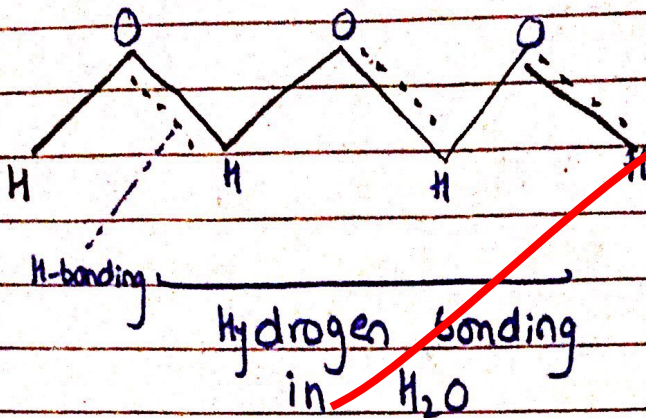 O O O
H H H H
H-bonding
Hydrogen bonding
in H₂O